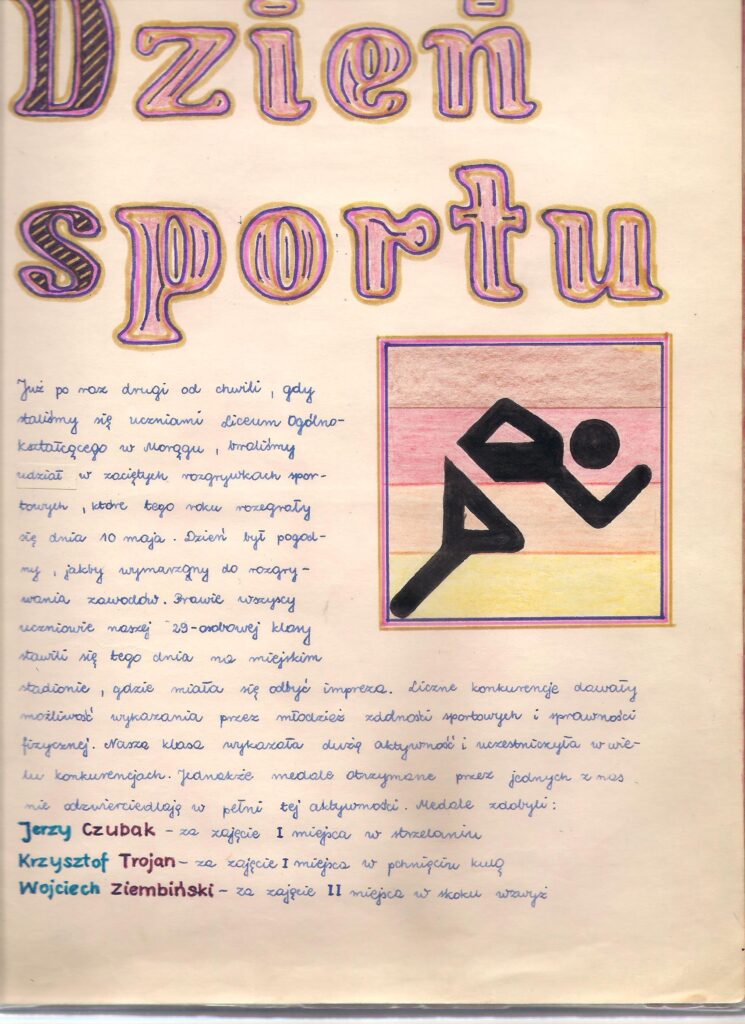 Dzień
sportu
Już po raz drugi od chwili, gdy
staliśmy się uczniami Liceum Ogólno-
kształcącego w Morągu, braliśmy
udział w zaciętych rozgrywkach spor-
towych, które tego roku rozegrały
się dnia 10 maja. Dzień był pogod-
ny, jakby wymarzony do rozgry-
wania zawodów. Prawie wszyscy
uczniowie naszej 29-osobowej klasy
stawili się tego dnia na miejskim
stadionie, gdzie miała się odbyć impreza. Liczne konkurencje dawały
możliwość wykazania przez młodzież zdolności sportowych i sprawności
fizycznej. Nasza klasa wykazała dużą aktywność i uczestniczyła w wie-
lu konkurencjach. Jednakże medale otrzymane przez jednych z nas
nie odzwierciedlają w pełni tej aktywności. Medale zdobyli:
Jerzy Czubak - za zajęcie I miejsca w strzelaniu
Krzysztof Trojan - za zajęcie I miejsca w pchnięciu kulą
Wojciech Ziembiński - za zajęcie II miejsca w skoku wzwyż